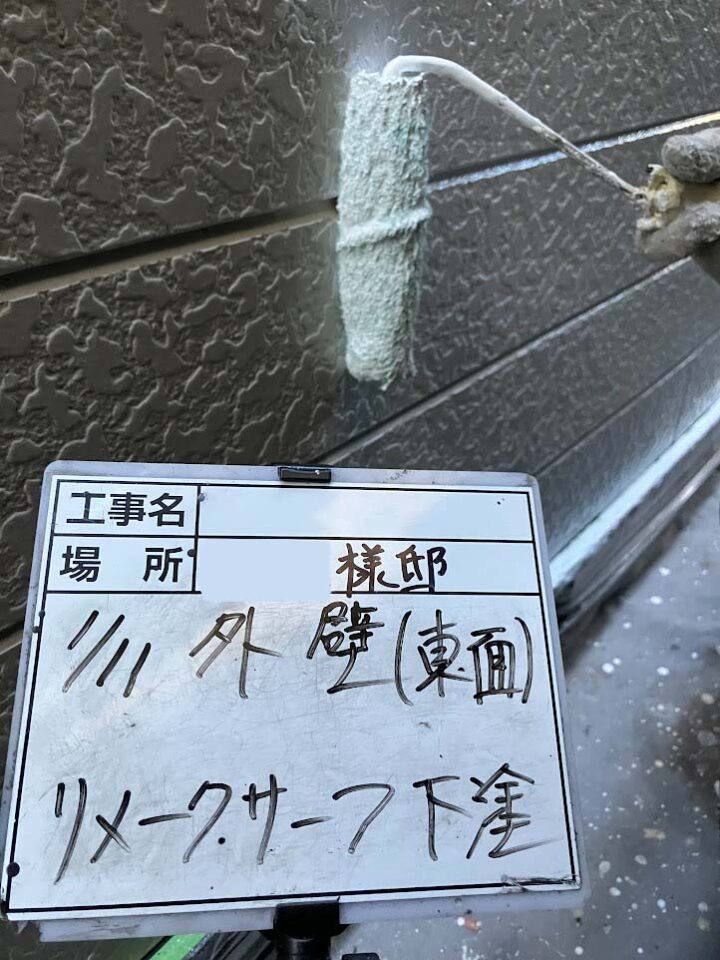 工事名
場所 様邸
1/11 外壁(東面)
リメークサーフ下塗